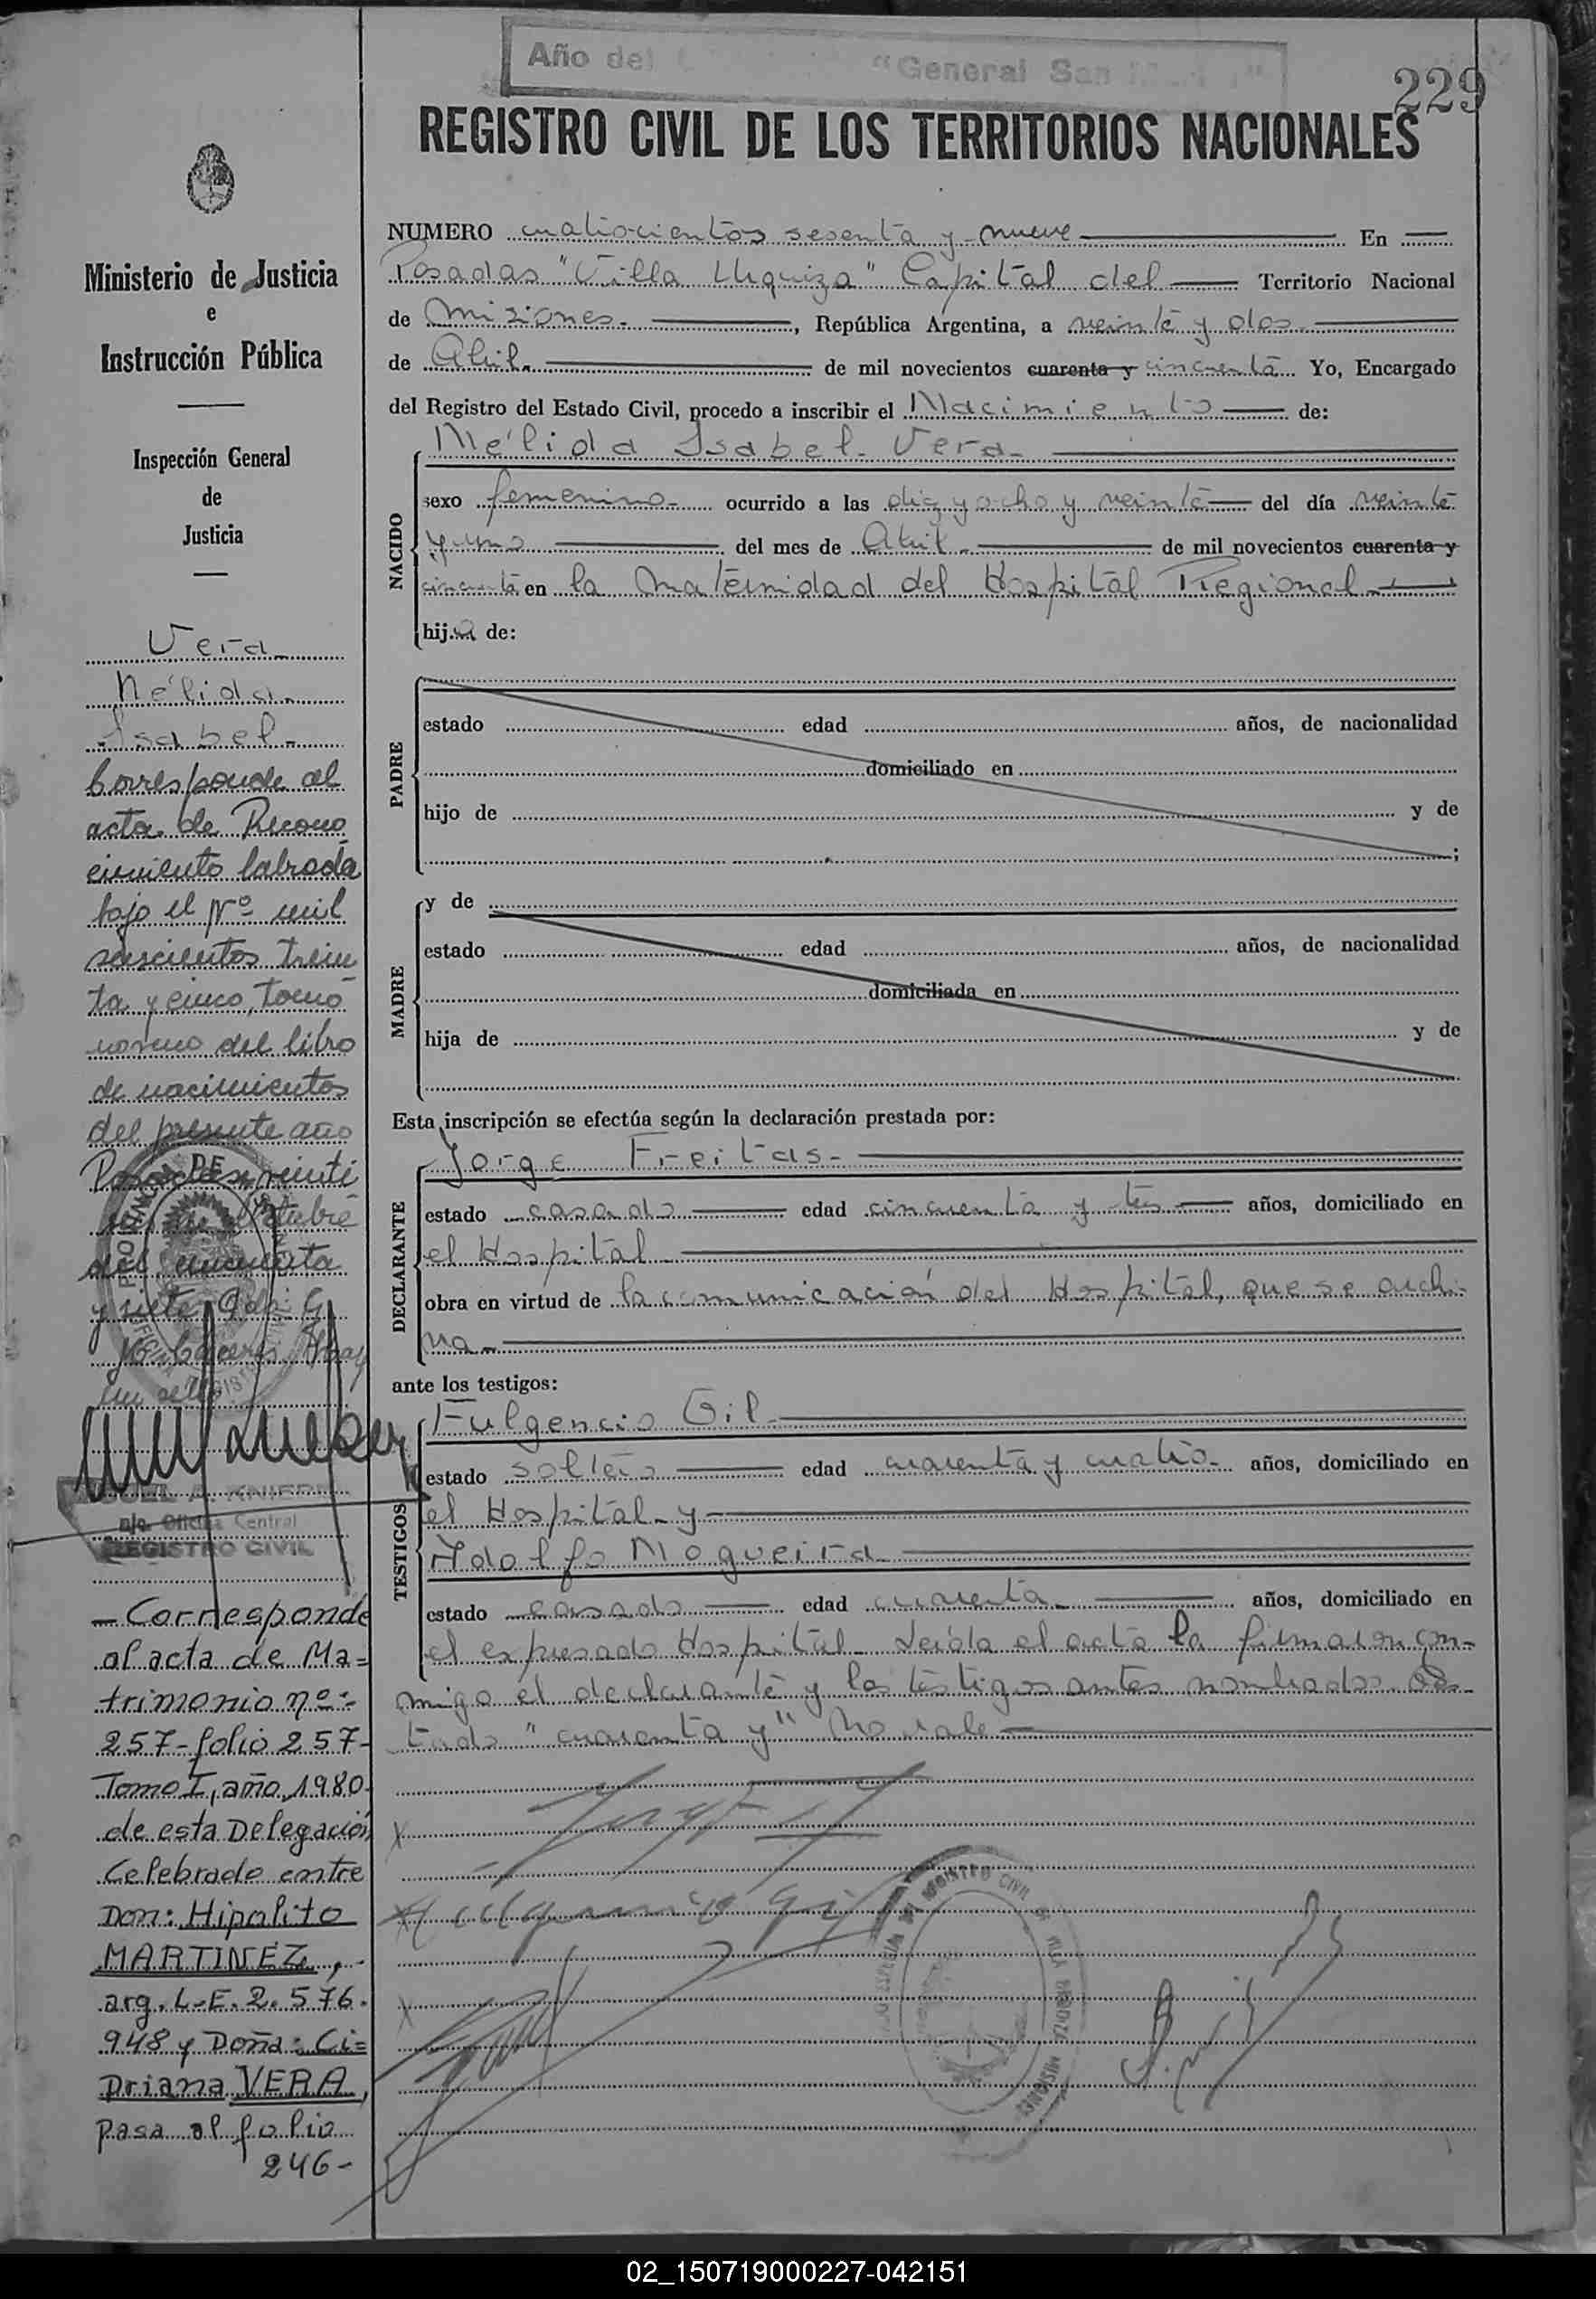 Año del "General San
229
REGISTRO CIVIL DE LOS TERRITORIOS NACIONALES
Ministerio de Justicia
e
Instrucción Pública
Inspección General
de
Justicia
NUMERO cuatrocientos sesenta y nueve En
Posadas "Villa Urquiza" Capital del Territorio Nacional
de Misiones. , República Argentina, a veinte y dos
de Abril. de mil novecientos cuarenta y cincuenta Yo, Encargado
del Registro del Estado Civil, procedo a inscribir el Nacimiento de:
NACIDO
Nélida Isabel Vera
sexo femenino ocurrido a las diez y ocho y veinte del día veinte
y uno del mes de Abril de mil novecientos cuarenta y
cincuenta en la Maternidad del Hospital Regional
hija de:
PADRE
estado edad años, de nacionalidad
domiciliado en
hijo de y de
;
MADRE
y de
estado edad años, de nacionalidad
domiciliada en
hija de y de
Esta inscripción se efectúa según la declaración prestada por:
DECLARANTE
Jorge Freitas
estado casado edad cincuenta y tres años, domiciliado en
el Hospital
obra en virtud de la comunicación del Hospital, que se archi-
va
ante los testigos:
TESTIGOS
Fulgencio Gil
estado soltero edad cuarenta y cuatro años, domiciliado en
el Hospital y
Adolfo Nogueira
estado casado edad cuarenta años, domiciliado en
el expresado Hospital. Leída el acta la firmaron con-
migo el declarante y los testigos antes nombrados.
tado "cuarenta y" No vale
Vera
Nélida
Isabel
Corresponde al
acta de Recono
cimiento labrada
bajo el Nº mil
seiscientos trein
ta y cinco, tomo
noveno del libro
de nacimientos
del presente año
Posadas, veinti
de octubre
del cincuenta
y siete
REGISTRO CIVIL
a/c. Oficina Central
- Corresponde
al acta de Ma=
trimonio nº:
257-folio 257-
Tomo I, año 1980
de esta Delegación
Celebrado entre
Don: Hipolito
MARTINEZ,
arg. L.E. 2.576.
948 y Doña: Ci=
priana VERA,
pasa al folio
246-
02_150719000227-042151